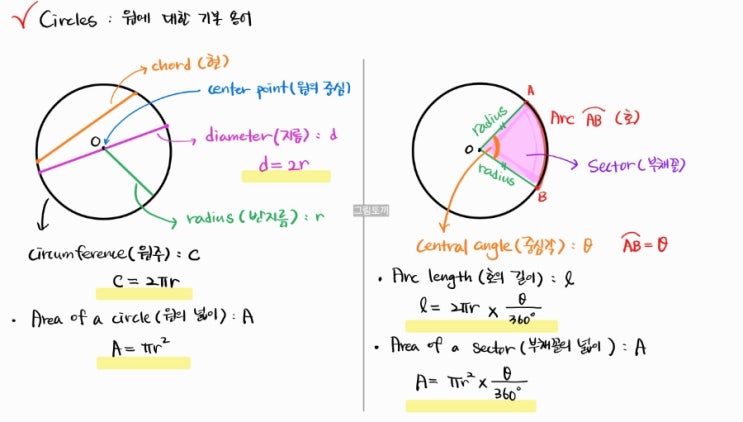 ✓ Circles : 원에 대한 기본 용어
chord (현)
center point (원의 중심)
O
diameter (지름) : d
d = 2r
radius (반지름) : r
circumference (원주) : C
C = 2πr
• Area of a circle (원의 넓이) : A
A = πr²
A
radius
Arc A͡B (호)
O
radius
Sector (부채꼴)
B
Central angle (중심각) : θ A͡B = θ
• Arc length (호의 길이) : ℓ
ℓ = 2πr × θ/360°
• Area of a sector (부채꼴의 넓이) : A
A = πr² × θ/360°